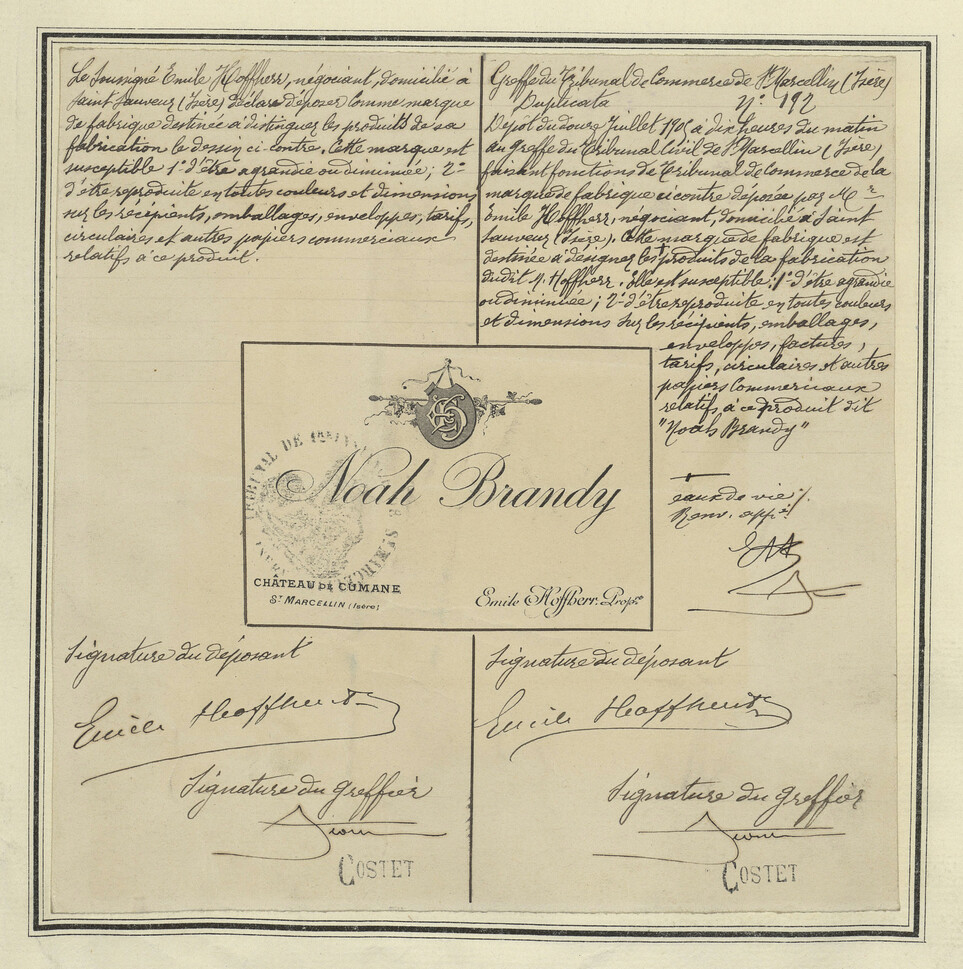 Le Soussigné Emile Hoffherr, négociant, domicilié à
Saint Sauveur (Isère) déclare déposer comme marque
de fabrique destinée à distinguer les produits de sa
fabrication le dessin ci-contre, Cette marque est
susceptible 1° d'être agrandie ou diminuée; 2°
d'être reproduite en toutes couleurs et dimensions
sur les récipients, emballages, enveloppes, tarifs,
circulaires et autres papiers commerciaux
relatifs à ce produit.
Greffe du Tribunal de Commerce de St Marcellin (Isère)
Duplicata N° 192
Dépôt du douze Juillet à dix heures du matin
au greffe du Tribunal Civil de St Marcellin (Isère)
faisant fonctions de Tribunal de Commerce de la
marque de fabrique ci contre déposée par Mr
Emile Hoffherr, négociant, domicilié à Saint
Sauveur (Isère). Cette marque de fabrique est
destinée à désigner les produits de la fabrication
dudit M. Hoffherr. Elle est susceptible: 1° d'être agrandie
ou diminuée; 2° d'être reproduite en toutes couleurs
et dimensions sur les récipients, emballages,
enveloppes, factures,
tarifs, circulaires et autres
papiers commerciaux
relatifs à ce produit dit
"Noah Brandy"
eaux de vie
Renv. app.
Noah Brandy
CHÂTEAU DE CUMANE
ST MARCELLIN (Isère)
Emile Hoffherr. Propre
Signature du déposant
Emile Hoffherr
Signature du Greffier
COSTET
Signature du déposant
Emile Hoffherr
Signature du Greffier
COSTET